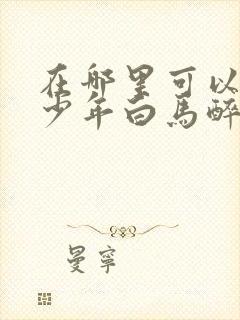 在哪里可以
少年白马醉
曼宁